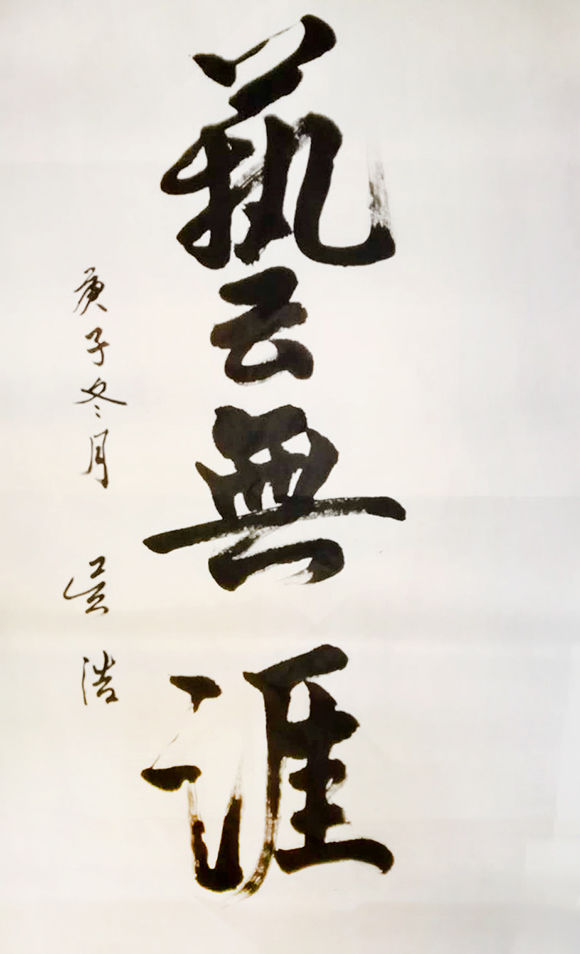 藝無涯
庚子冬月 吴浩